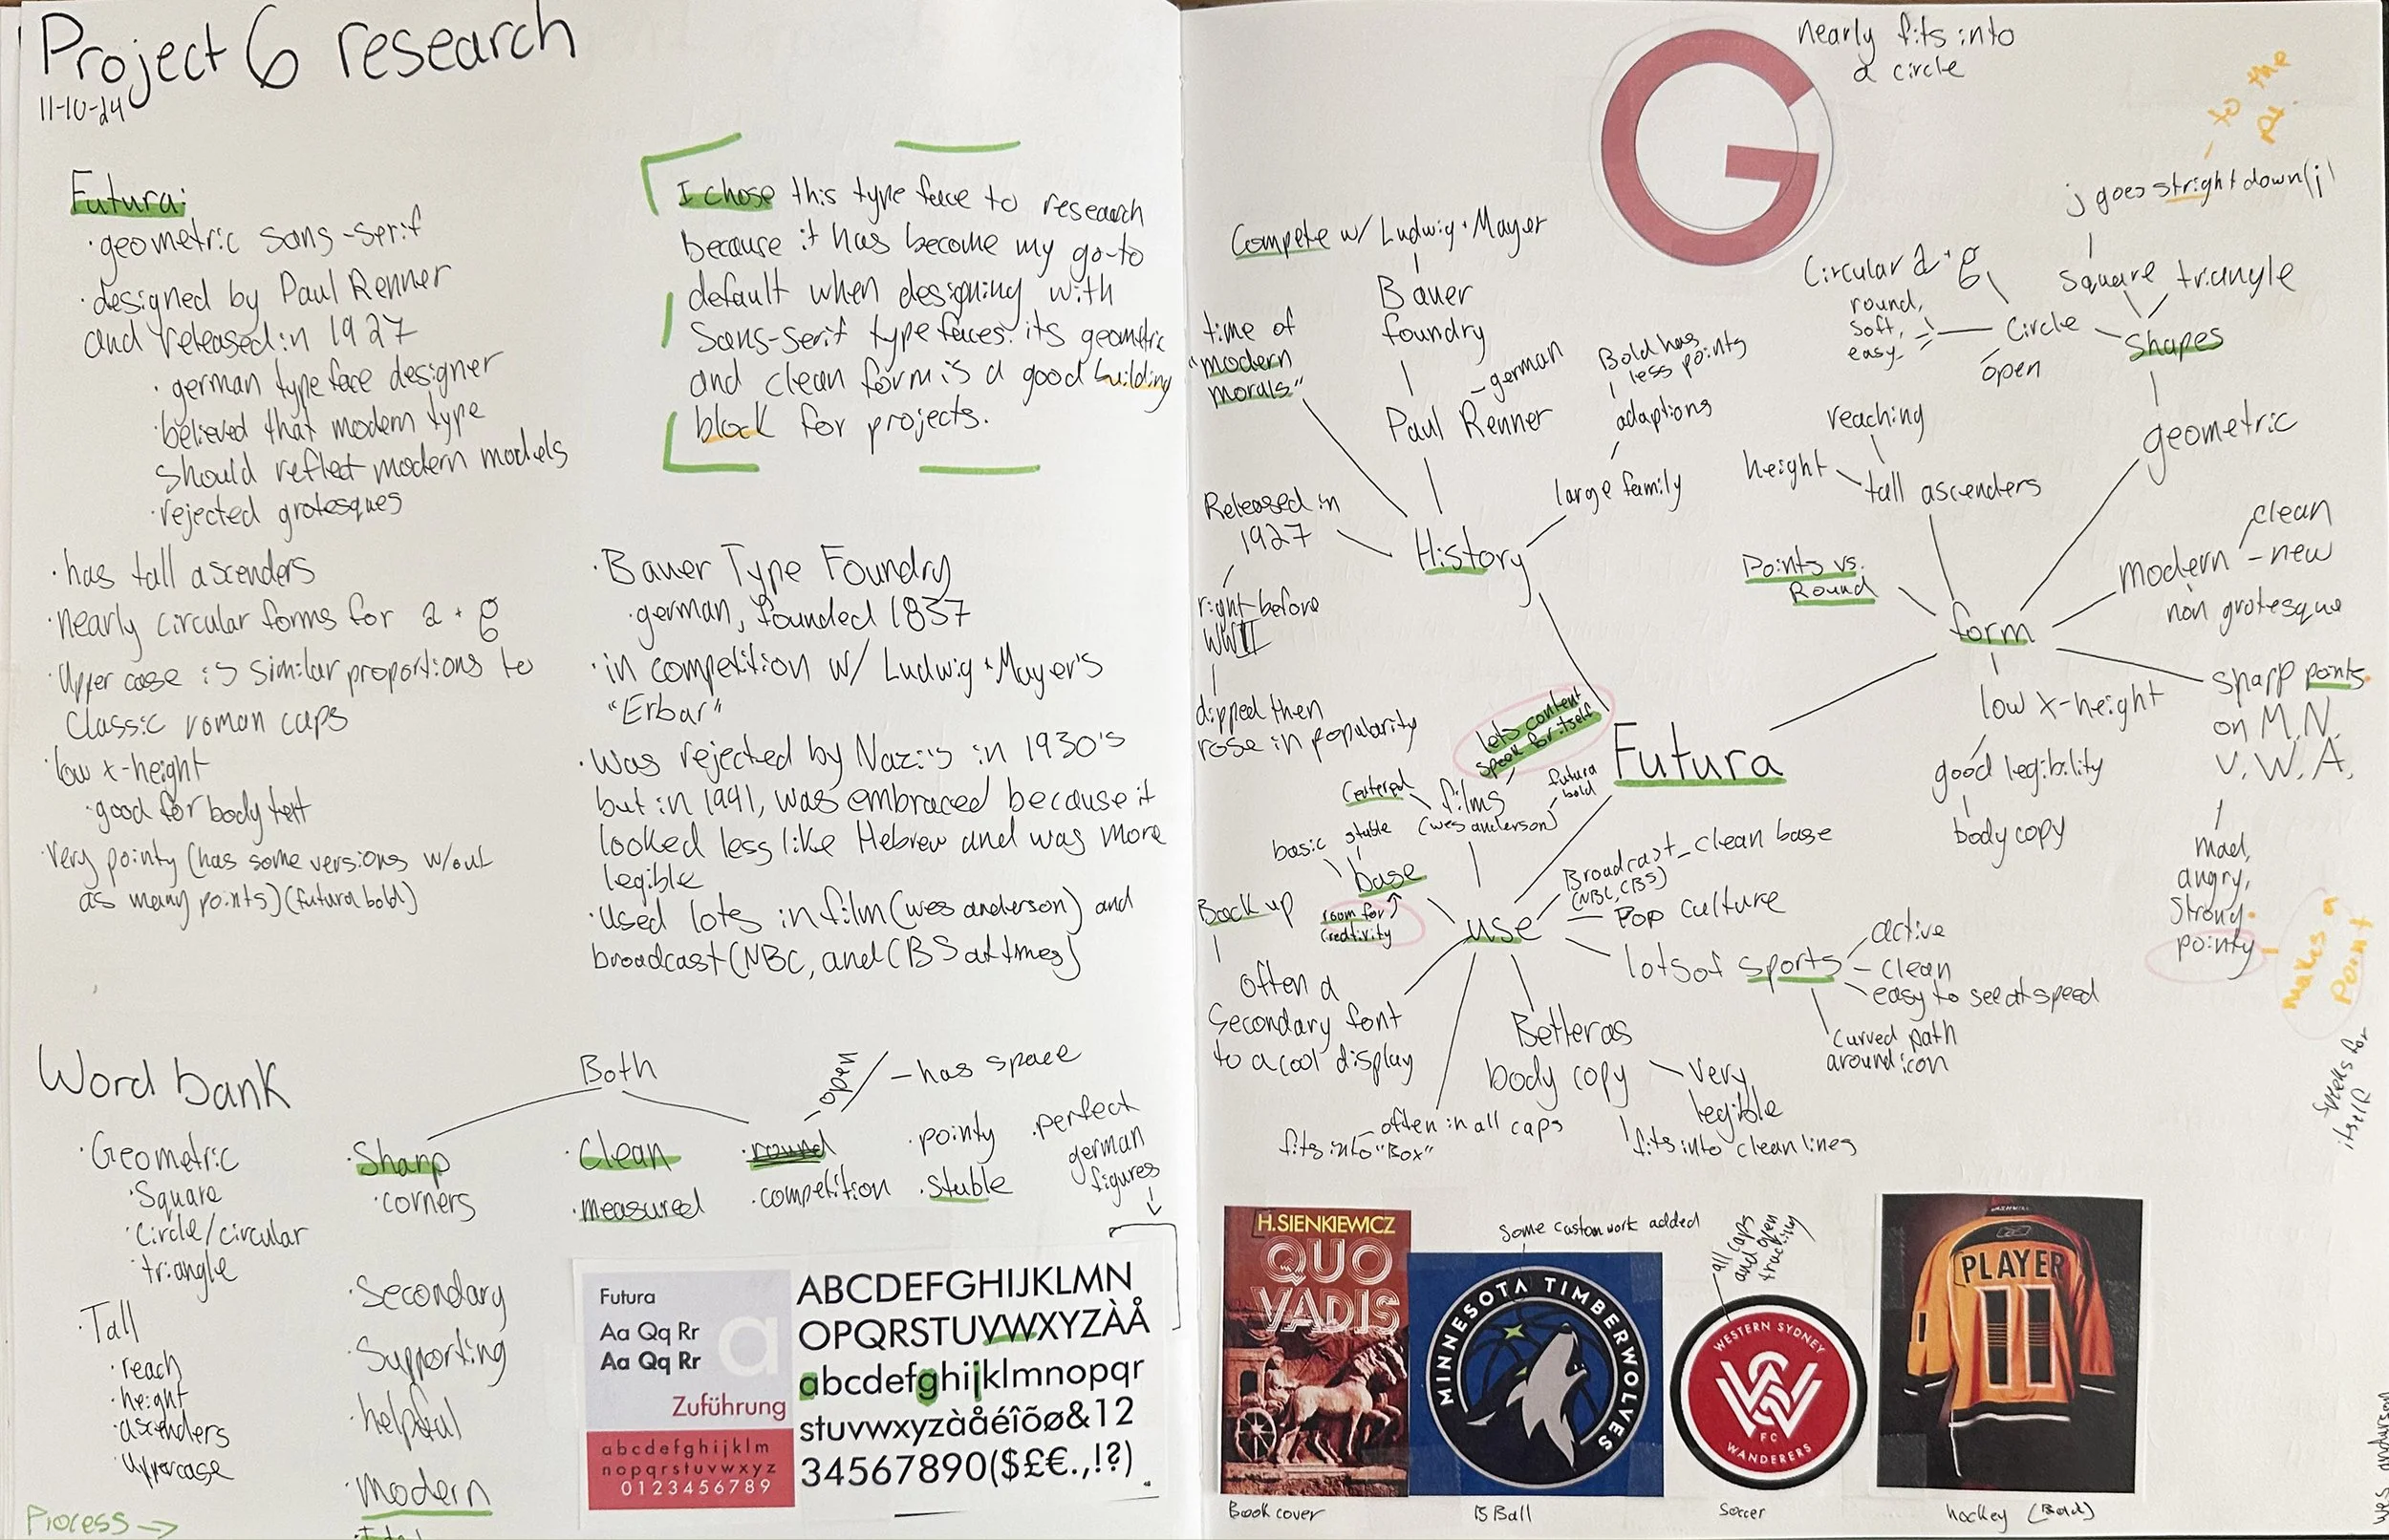 Project 6 research
11-10-24
Futura:
·geometric sans-serif
·designed by Paul Renner
and released in 1927
·german type face designer
·believed that modern type
should reflect modern models
·rejected grotesques
·has tall ascenders
·nearly circular forms for a + g
·Upper case is similar proportions to
Classic roman caps
·low x-height
·good for body text
·Very pointy (has some versions w/out
as many points) (futura bold)
I chose this type face to research
because it has become my go-to
default when designing with
Sans-serif type faces. its geometric
and clean form is a good building
block for projects.
·Bauer Type Foundry
·german, founded 1837
·in competition w/ Ludwig + Mayer's
"Erbar"
·Was rejected by Nazi's in 1930's
but in 1941, was embraced because it
looked less like Hebrew and was more
legible
·Used lots in film (wes anderson) and
broadcast (NBC, and CBS at times)
Word bank
·Geometric
·Square
·Circle/circular
·triangle
·Tall
·reach
·height
·ascenders
·uppercase
Process →
Both
·Sharp
·corners
·Secondary
·Supporting
·helpful
·Modern
·Clean
·measured
·round
- open
- has space
·competition
·pointy
·stable
·perfect
german
figures
Futura
Aa Qq Rr
Aa Qq Rr
a
Zuführung
abcdefghijklm
nopqrstuvwxyz
0123456789
ABCDEFGHIJKLMN
OPQRSTUVWXYZÀÅ
abcdefghijklmnopqr
stuvwxyzàåéîõø&12
34567890($£€.,!?)
G
nearly fits into
a circle
Compete w/ Ludwig + Mayer
Bauer
foundry
Paul Renner
- german
time of
"modern
morals"
Released in
1927
right before
WWII
dipped then
rose in popularity
History
Bold has
less points
adaptions
large family
- to the
pt.
j goes stright down (j)
Circular a + g
round,
soft,
easy
Circle
open
Square
triangle
Shapes
geometric
reaching
height
tall ascenders
Points vs.
Round
form
modern
clean
- new
non grotesque
low x-height
good legibility
body copy
sharp points
on M.N.
V.W.A.
mad,
angry,
strong.
pointy
makes a
point
speaks for
itself
Futura
lets content
speak for itself
Centered
films
(wes anderson)
futura
bold
basic
stable
base
room for
creativity
Back up
often a
Secondary font
to a cool display
use
Broadcast - clean base
(NBC, CBS)
Pop culture
lots of sports
active
- clean
easy to see at speed
Curved path
around icon
Better as
body copy
very
legible
fits into clean lines
- often in all caps
fits into "Box"
H.SIENKIEWICZ
QUO
VADIS
Book cover
Some custom work added
MINNESOTA TIMBERWOLVES
BBall
all caps
and open
tracking
WESTERN SYDNEY
FC
WANDERERS
Soccer
PLAYER
11
hockey (Bold)
wes anderson